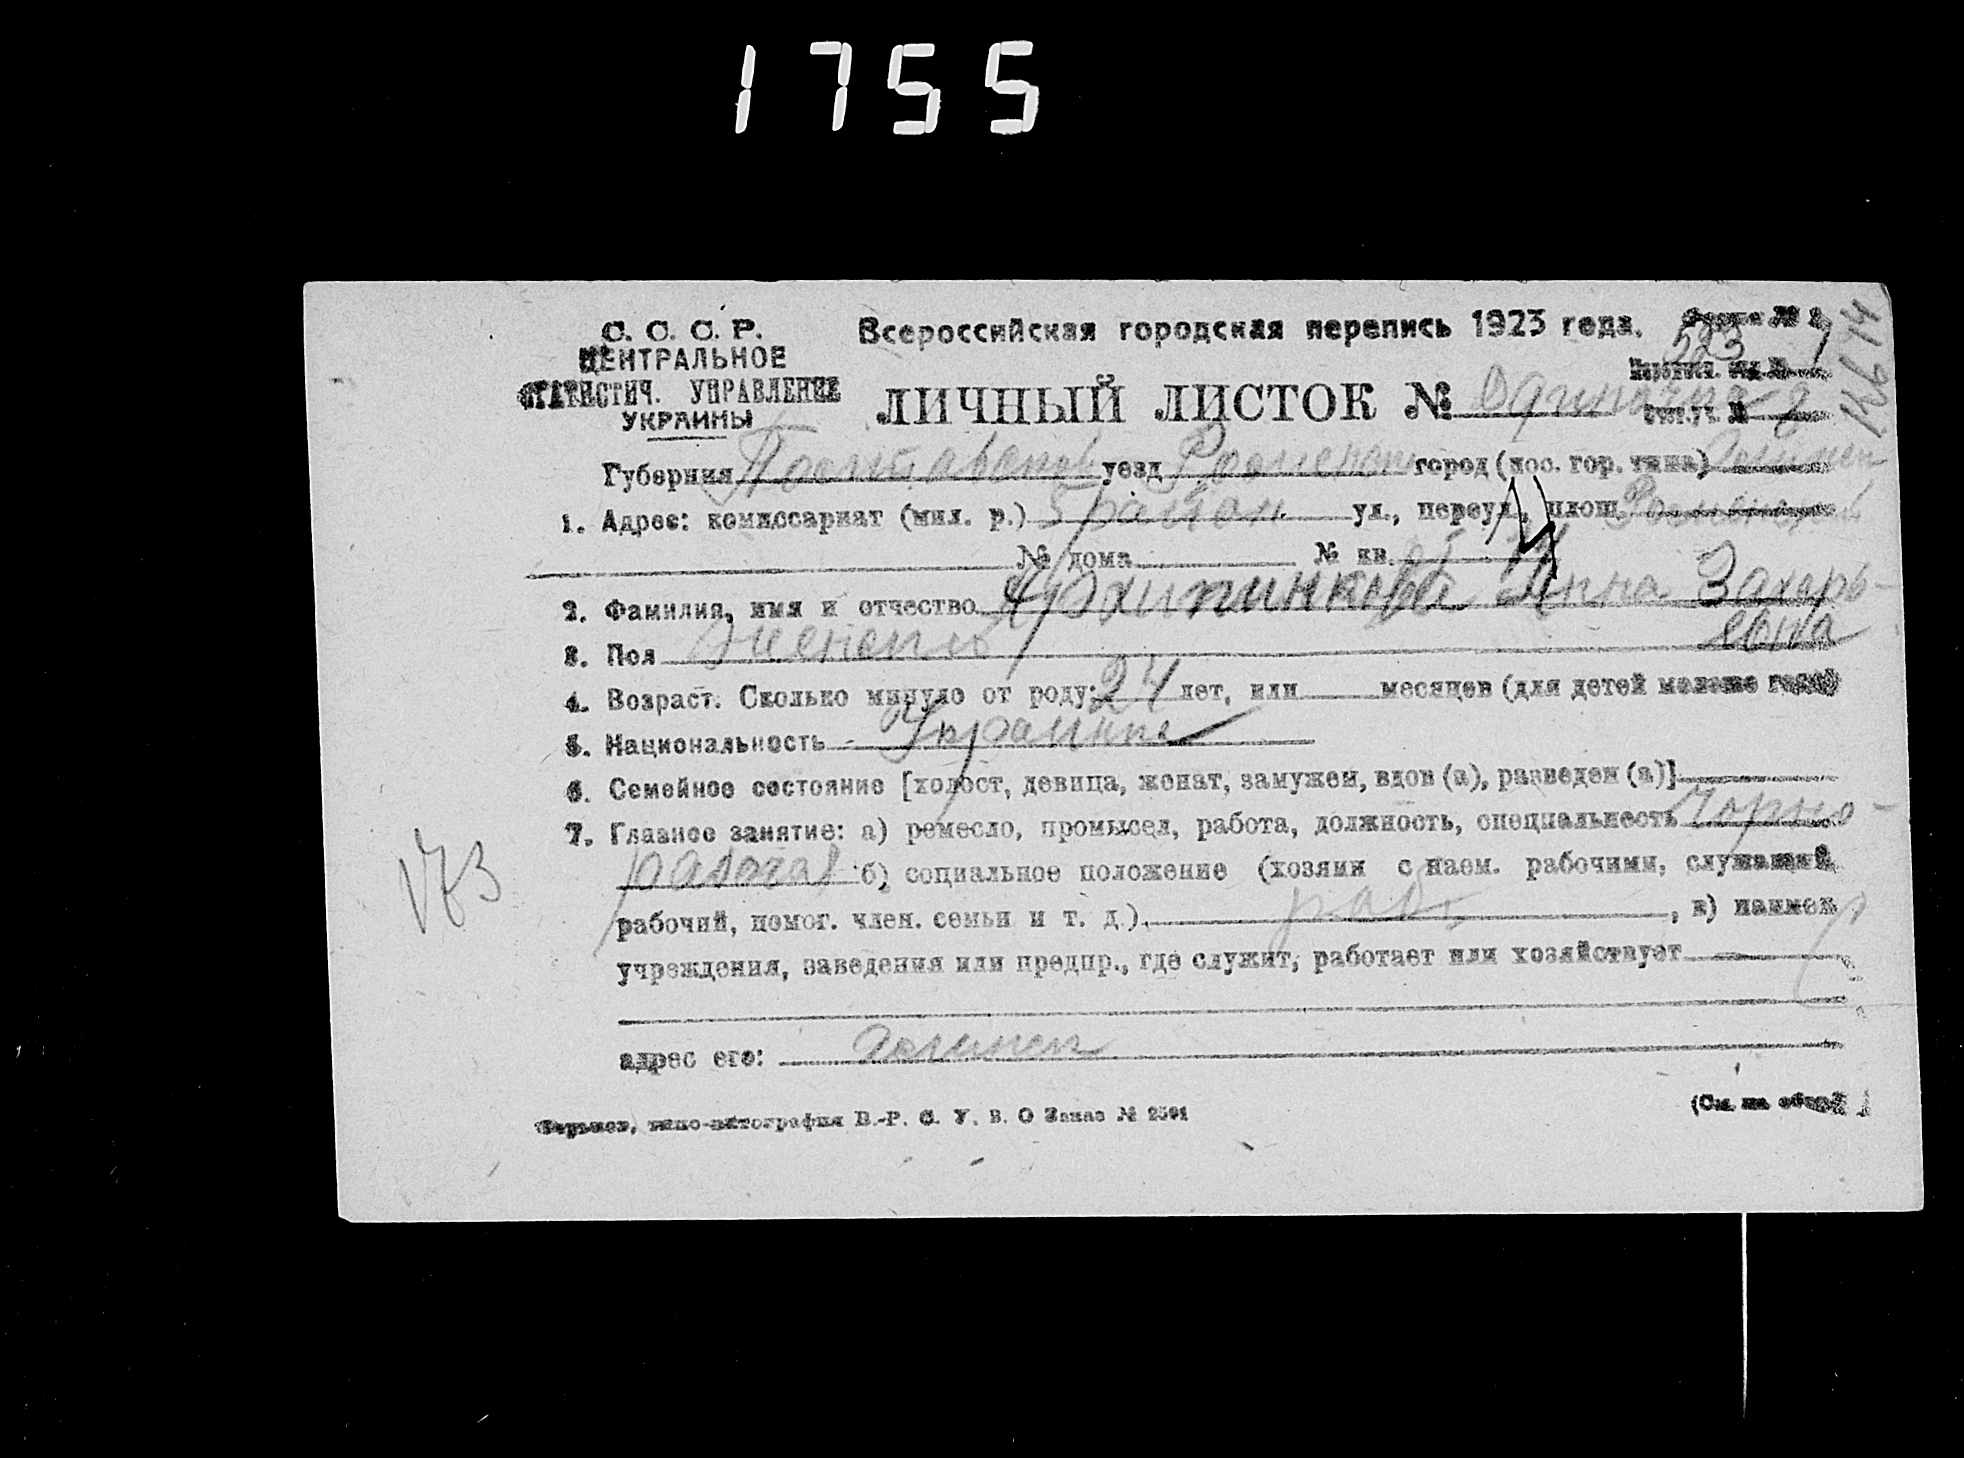 1755
С. С. С. Р.
ЦЕНТРАЛЬНОЕ
СТАТИСТИЧ. УПРАВЛЕНИЕ
УКРАИНЫ
Всероссийская городская перепись 1923 года.
523
ЛИЧНЫЙ ЛИСТОК №
Губерния Полтавская уезд Роменский город (пос. гор. типа)
1. Адрес: комиссариат (мил. р.) район ул., переул., площ.
№ дома № кв.
2. Фамилия, имя и отчество Архипинкова Анна Захарь-
евна
3. Пол женский
4. Возраст. Сколько минуло от роду: 24 лет, или месяцев (для детей моложе года)
5. Национальность -
6. Семейное состояние [холост, девица, женат, замужем, вдов (а), разведен (а)]
7. Главное занятие: а) ремесло, промысел, работа, должность, специальность Чорно-
рабочая б) социальное положение (хозяин с наем. рабочими, служащий,
рабочий, помог. член. семьи и т. д.) раб. , в) наимен.
учреждения, заведения или предпр., где служит, работает или хозяйствует
адрес его:
Харьков, типо-литография В.-Р. С. У. В. О Заказ № 2501
(См. на обор.)
173